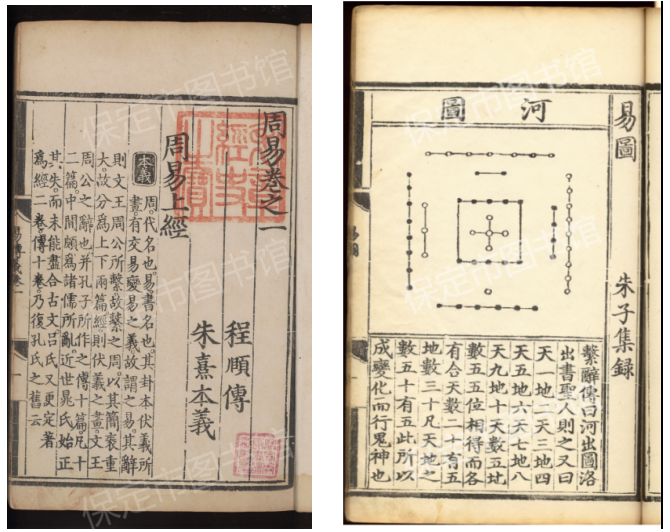 周易卷之一
程頤傳
朱熹本義
周易上經
本義
周。代名也。易。書名也。其卦本伏羲所
畫。有交易變易之義。故謂之易。其辭
則文王周公所繫。故繫之周。以其簡袠重
大。故分爲上下兩篇。經則伏羲之畫。文王
周公之辭也。并孔子所作之傳十篇。凡十
二篇。中間頗爲諸儒所亂。近世晁氏始正
其失。而未能盡合古文。呂氏又更定著
爲經二卷。傳十卷。乃復孔氏之舊云
易圖
朱子集録
河圖
繫辭傳曰河出圖洛
出書聖人則之又曰
天一地二天三地四
天五地六天七地八
天九地十天數五地
數五五位相得而各
有合天數二十有五
地數三十凡天地之
數五十有五此所以
成變化而行鬼神也
保定市图书馆
保定市图书馆
保定市图书馆
保定市图书馆